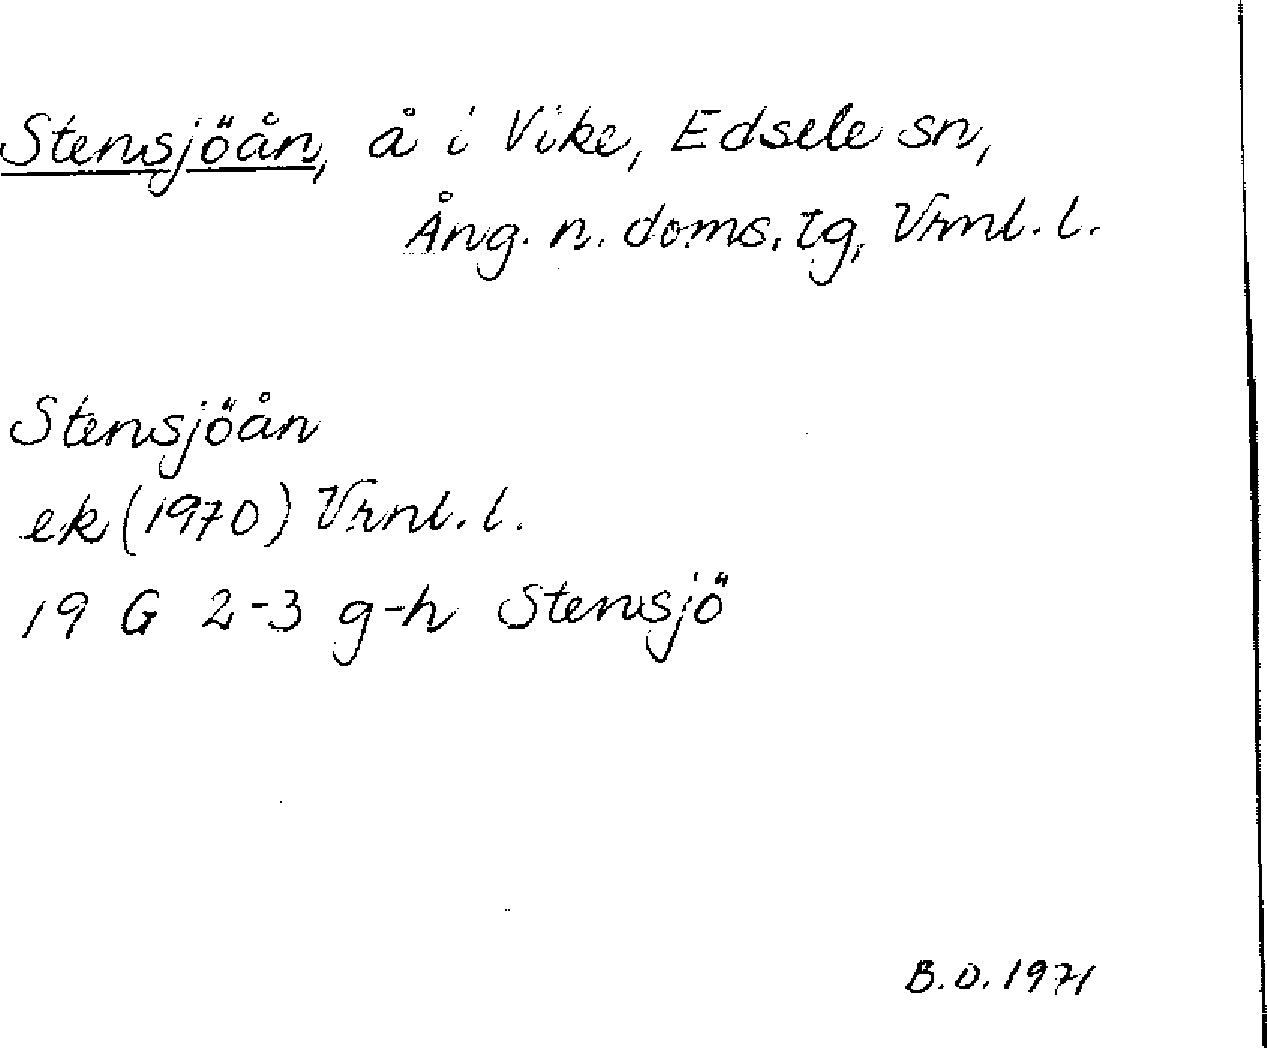 Stensjöån, å i Vike, Edsele sn,
Ång. n. doms. tg, Vrnl. l.
Stensjöån
ek (1970) Vrnl. l.
19 G 2-3 g-h Stensjö
B.O. 1971